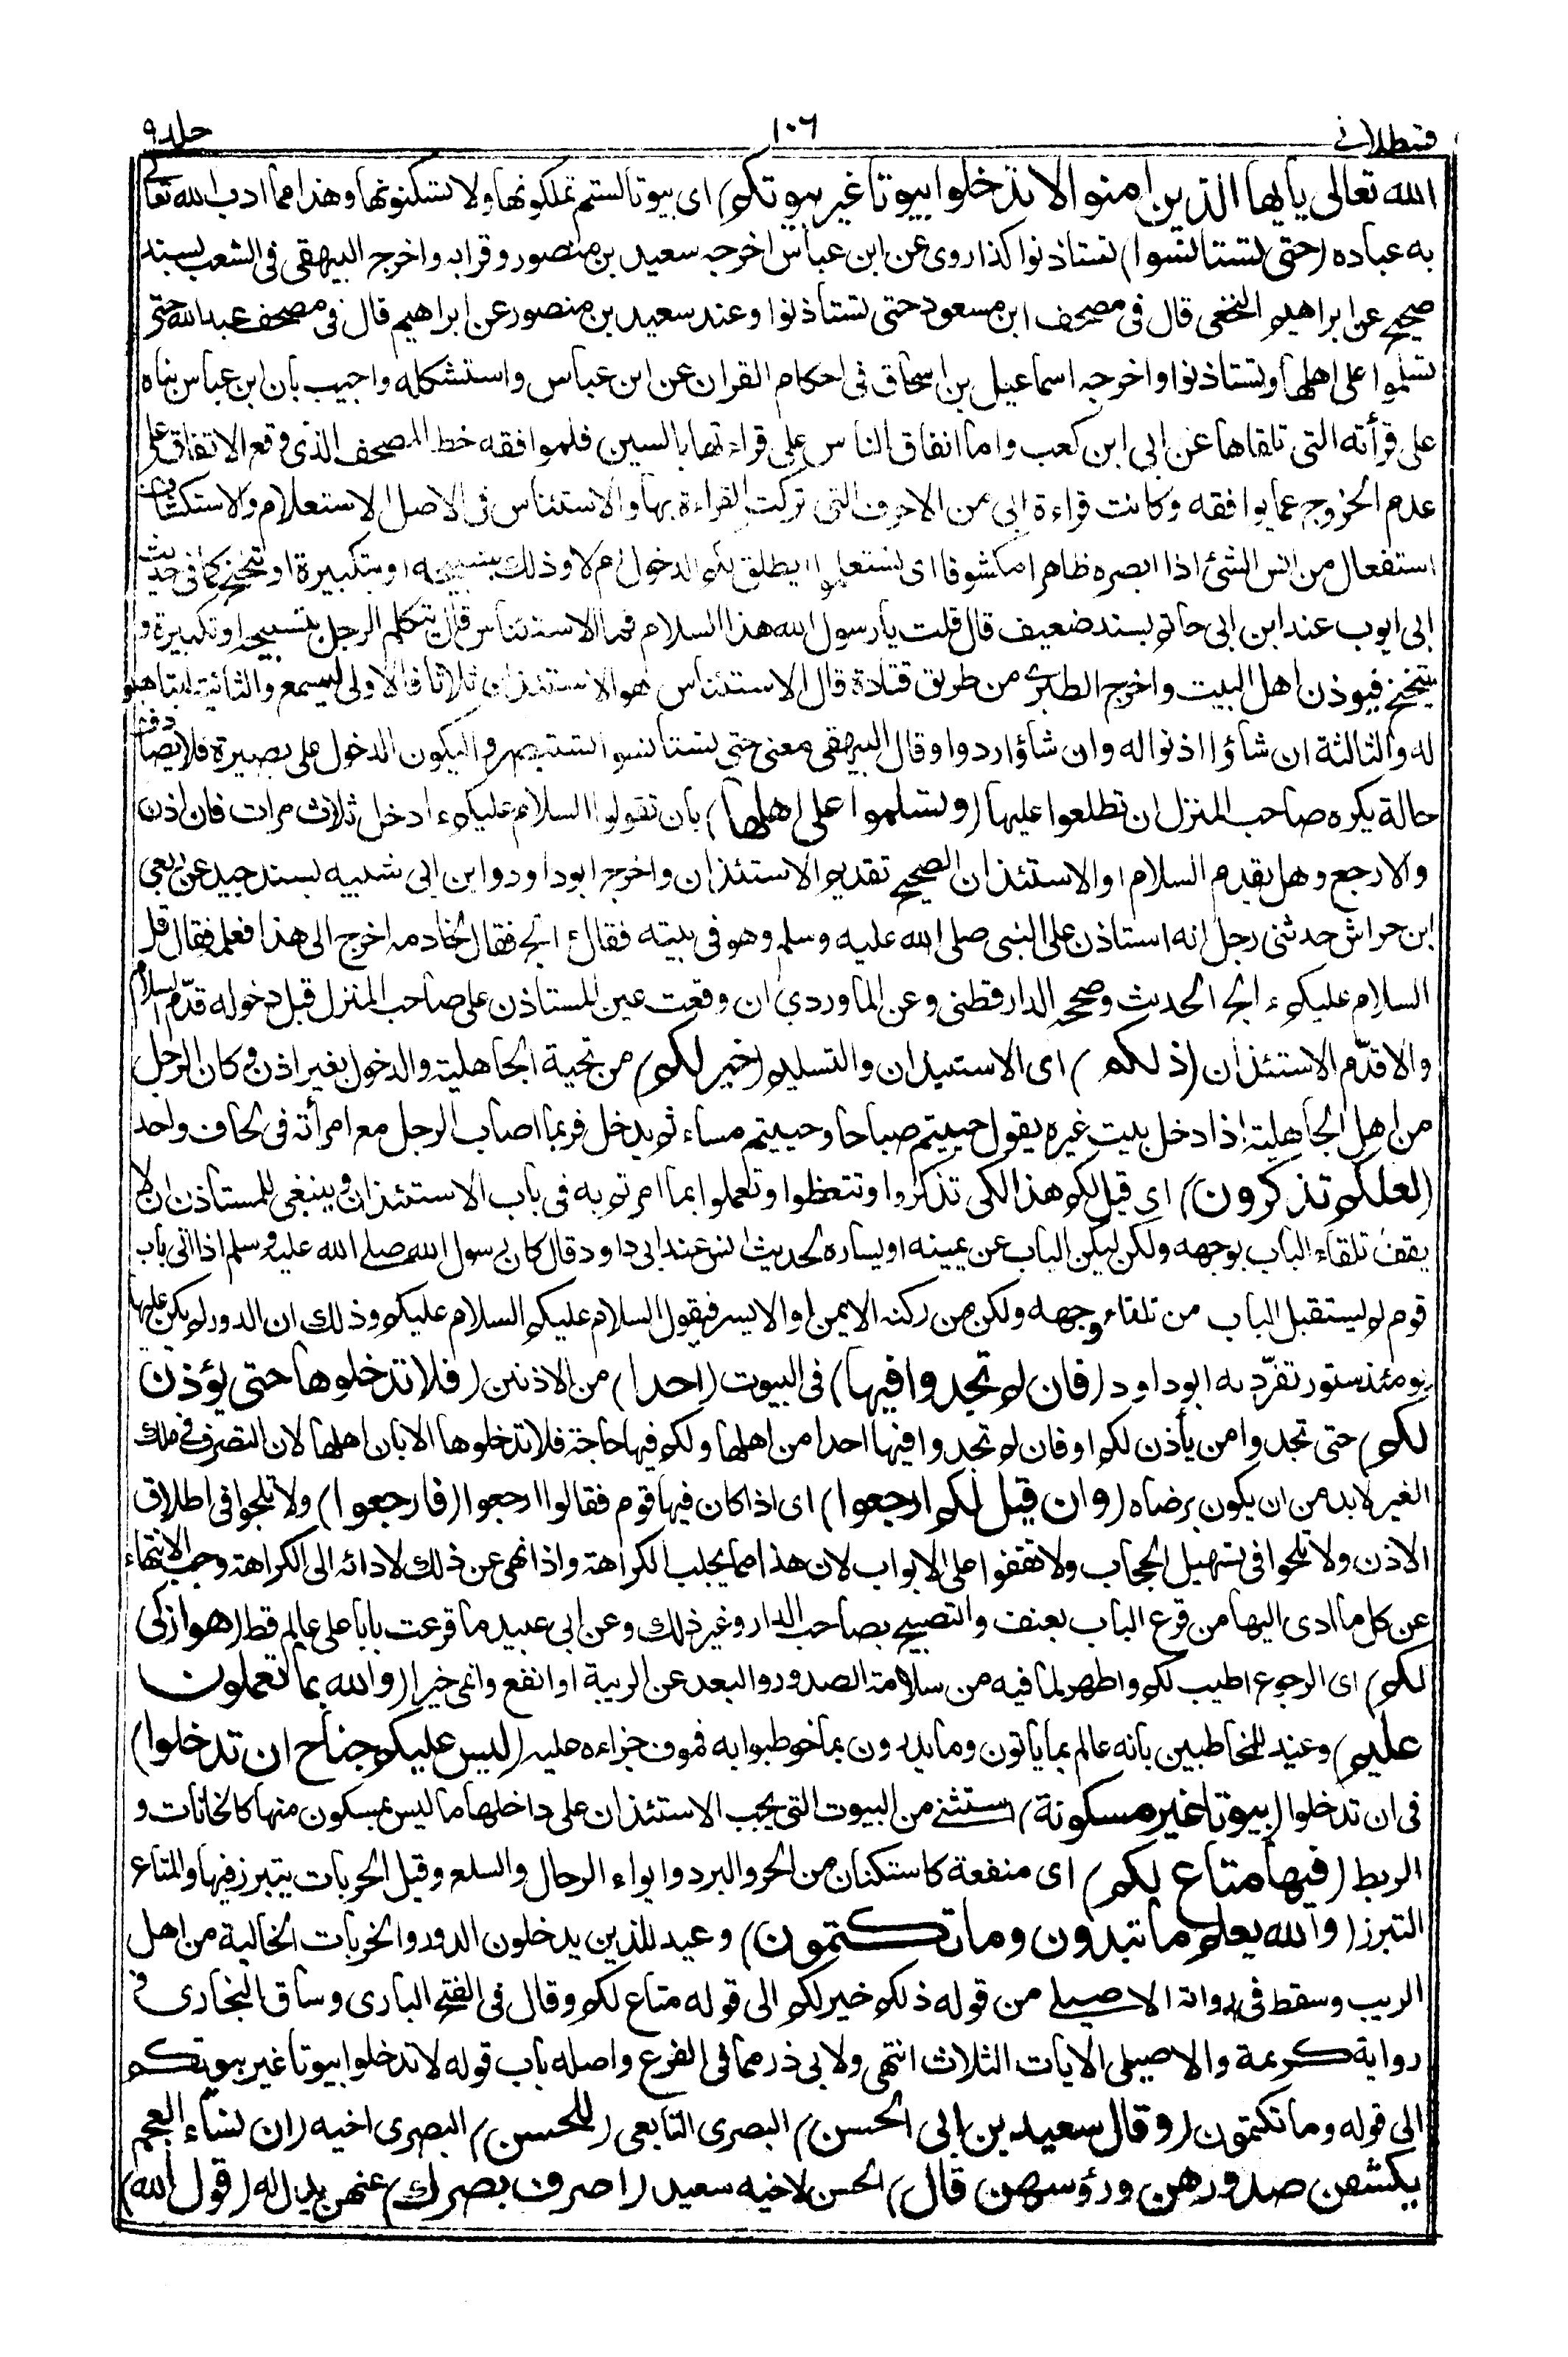 قسطلانی ١٠٦ جلد ٩
الله تعالى يايها الذين امنوا لا تدخلوا بيوتا غير بيوتكم) اى بيوتا لستم تملكونها ولا تسكنونها وهذا مما ادب الله تعالى
به عباده (حتى تستانسوا) تستاذنوا كذا روى عن ابن عباس اخرجه سعيد بن منصور وقرا به واخرجه البيهقى فى الشعب بسند
صحيح عن ابراهيم النخعى قال فى مصحف ابن مسعود حتى تستاذنوا وعند سعيد بن منصور عن ابراهيم قال فى مصحف عبد الله حتى
تسلموا على اهلها وتستاذنوا واخرجه اسماعيل بن اسحاق فى احكام القران عن ابن عباس واستشكله واجيب بان ابن عباس بناه
على قرأته التى تلقاها عن ابى ابن كعب واما اتفاق الناس على قراءتها بالسين فلموافقه خط المصحف الذى وقع الاتفاق على
عدم الخروج عما يوافقه وكانت قراءة ابى من الاحرف التى تركت القراءة بها والاستئناس فى الاصل الاستعلام والاستكشاف
استفعال من انس الشئ اذا ابصره ظاهرا مكشوفا اى تستعلموا ايطلق لكم الدخول ام لا وذلك بتسبيحه او بتكبيرة او تنحنح كما فى حديث
ابى ايوب عند ابن ابى حاتم بسند ضعيف قال قلت يا رسول الله هذا السلام فما الاستئناس قال يتكلم الرجل بتسبيحه او تكبيرة و
يتنحنح فيوذن اهل البيت واخرج الطبرى من طريق قتادة قال الاستئناس هو الاستئذان ثلاثا فالاولى ليسمع والثانية ليتاهبوا
له والثالثة ان شاؤا اذنوا له وان شاؤا ردوا وقال البيهقى معنى حتى تستانسوا تستبصروا ليكون الدخول على بصيرة فلا يصادف
حالة يكره صاحب المنزل ان تطلعوا عليها (وتسلموا على اهلها) بان تقولوا السلام عليكم ءادخل ثلاث مرات فان اذن
والا رجع وهل يقدم السلام او الاستئذان الصحيح تقديم الاستئذان واخرج ابوداود وابن ابى شيبه بسند جيد عن ربعى
ابن حراش حدثنى رجل انه استاذن على النبى صلى الله عليه وسلم وهو فى بيته فقال ءالج فقال لخادمه اخرج الى هذا فعلمه فقال قل
السلام عليكم ءالج الحديث وصححه الدارقطنى وعن الماوردي ان وقعت عين المستاذن على صاحب المنزل قبل دخوله قدّم السلام
والا قدّم الاستئذان (ذلكم) اى الاستيذان والتسليم (خير لكم) من تحية الجاهلية والدخول بغير اذن وكان الرجل
من اهل الجاهلية اذا دخل بيت غيره يقول حييتم صباحا وحييتم مساء ثم يدخل فربما اصاب الرجل مع امرأته فى لحاف واحد
(لعلكم تذكرون) اى قيل لكم هذا لكى تذكروا وتتعظوا وتعملوا بما امرتم به فى باب الاستئذان وينبغى للمستاذن ان لا
يقف تلقاء الباب بوجهه ولكن ليكن الباب عن يمينه او يساره لحديث انس عند ابى داود قال كان رسول الله صلى الله عليه وسلم اذا اتى باب
قوم لم يستقبل الباب من تلقاء وجهه ولكن من ركنه الايمن او الايسر فيقول السلام عليكم السلام عليكم وذلك ان الدور لم يكن عليها
يومئذ ستور تفرّد به ابوداود (فان لم تجدوا فيها) فى البيوت (احدا) من الاذنين (فلا تدخلوها حتى يؤذن
لكم) حتى تجدوا من يأذن لكم او فان لم تجدوا فيها احدا من اهلها ولكم فيها حاجة فلا تدخلوها الا باذن اهلها لان التصرف فى ملك
الغير لابد من ان يكون برضاه (وان قيل لكم ارجعوا) اى اذا كان فيها قوم فقالوا ارجعوا (فارجعوا) ولا تلجوا فى اطلاق
الاذن ولا تلحوا فى تسهيل الحجاب ولا تقفوا على الابواب لان هذا مما يجلب الكراهة واذا نهى عن ذلك لادائه الى الكراهة وجب الانتهاء
عن كل ما ادى اليها من قرع الباب بعنف والتصييح بصاحب الدار وغير ذلك وعن ابى عبيد ما قرعت بابا على عالم قط (هو ازكى
لكم) اى الرجوع اطيب لكم واطهر لما فيه من سلامة الصدور والبعد عن الريبة او انفع وانمى خيرا (والله بما تعملون
عليم) وعيد للمخاطبين بانه عالم بما ياتون وما يذرون بما خوطبوا به فموف جزاءه عليه (ليس عليكم جناح ان تدخلوا)
فى ان تدخلوا (بيوتا غير مسكونة) استثنى من البيوت التى يجب الاستئذان على داخلها ما ليس بمسكون منها كالخانات و
الربط (فيها متاع لكم) اى منفعة كاستكنان من الحر والبرد وايواء الرحال والسلع وقيل الخربات يتبرز فيها والمتاع
التبرز (والله يعلم ما تبدون وما تكتمون) وعيد للذين يدخلون الدور والخربات الخالية من اهل
الريب وسقط فى رواية الاصيلى من قوله ذلكم خير لكم الى قوله متاع لكم وقال فى الفتح البارى وساق البخارى فى
رواية كريمة والاصيلى الايات الثلاث انتهى ولابى ذر مما فى الفرع واصله باب قوله لا تدخلوا بيوتا غير بيوتكم
الى قوله وما تكتمون (وقال سعيد بن ابى الحسن) البصرى التابعى (للحسن) البصرى اخيه (ان نساء العجم
يكشفن صدورهن ورؤسهن قال) الحسن لاخيه سعيد (اصرف بصرك) عنهن يدل له (قول الله)